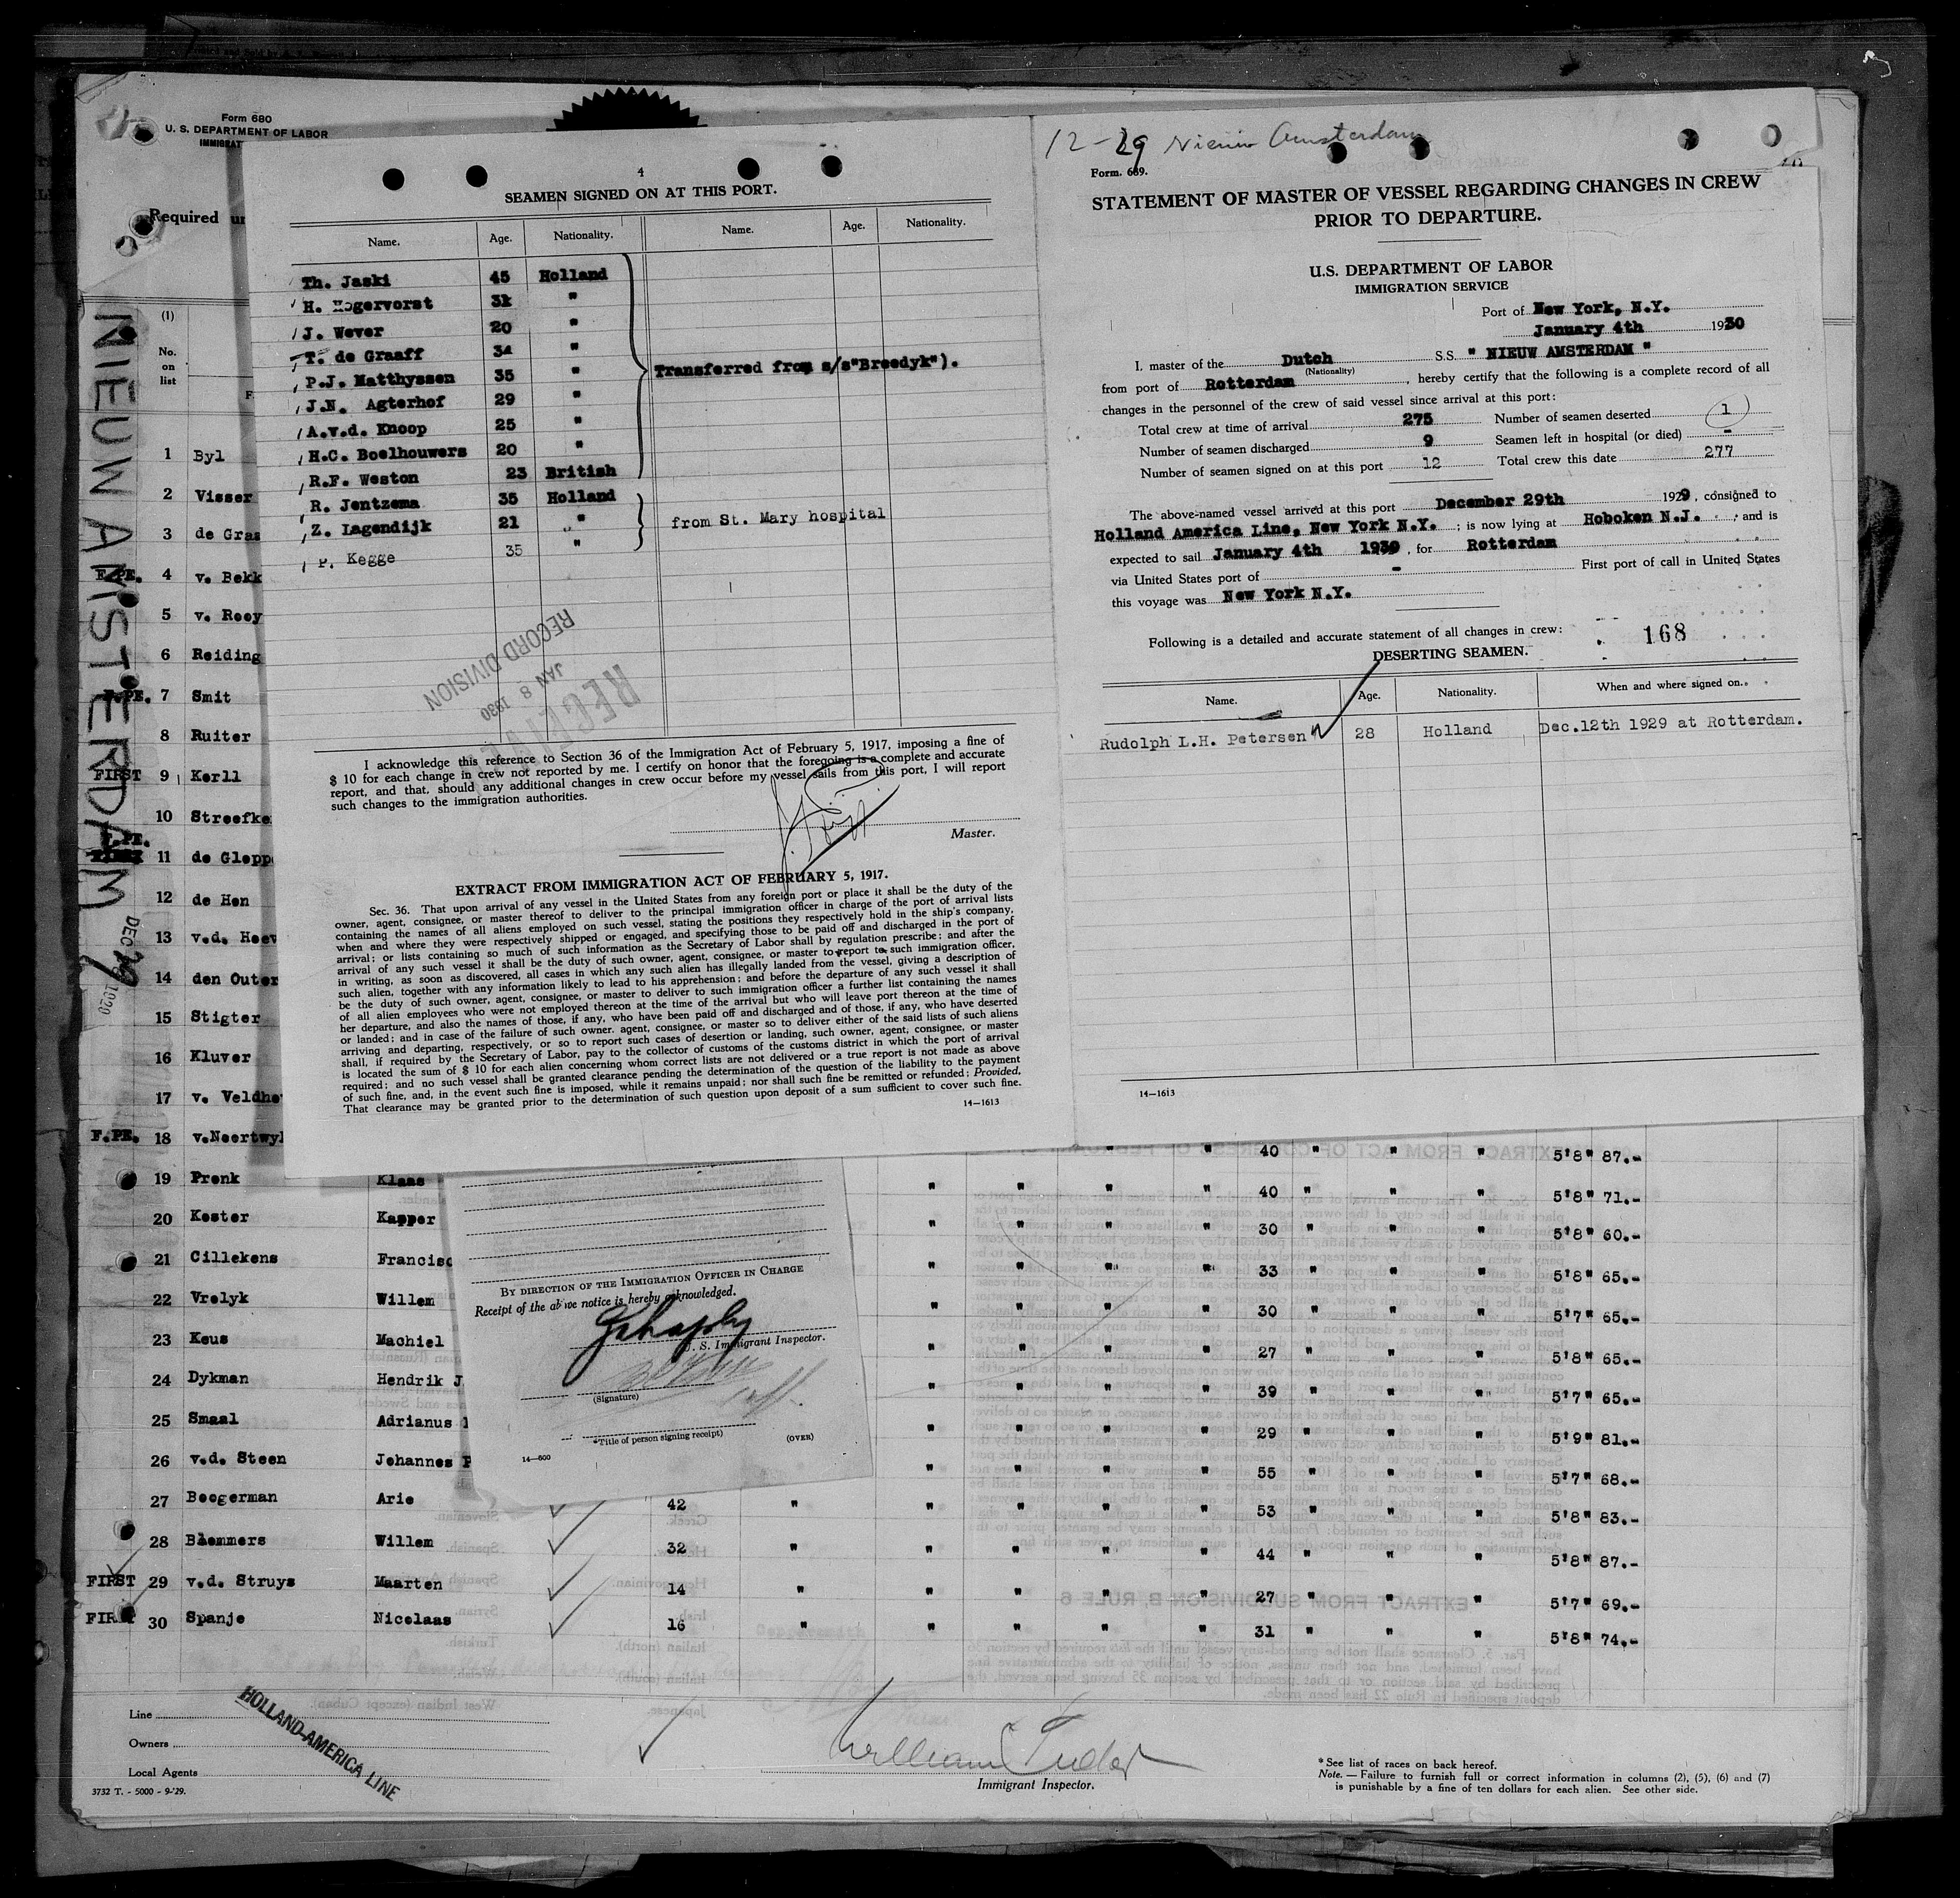 Form 680
U. S. DEPARTMENT OF LABOR
IMMIGRAT
Required un
NIEUW AMSTERDAM
DEC 29
(1)
No.
on
list
F.
1 Byl
2 Visser
3 de Graa
F.PE. 4 v. Bekk
5 v. Rooy
6 Reiding
F.PE. 7 Smit
8 Ruiter
FIRST 9 Kerll
10 Streefke
F.PE.
FIRST 11 de Glopp
12 de Hen
13 v.d. Heev
14 den Outer
15 Stigter
16 Kluver
17 v. Veldho
F.PE. 18 v.Noortwyk
4
SEAMEN SIGNED ON AT THIS PORT.
Name. Age. Nationality. Name. Age. Nationality.
Th. Jaski 45 Holland
H. Hogervorst 31 "
J. Wever 20 "
T. de Graaff 34 "
Transferred from s/s"Breedyk").
P.J. Matthyssen 35 "
J.N. Agterhof 29 "
A.v.d. Knoop 25 "
H.C. Boelhouwers 20 "
R.F. Weston 23 British
R. Jentzema 35 Holland
Z. Lagendijk 21 " from St. Mary hospital
P. Kegge 35 "
RECEIVED
JAN 8 1930
RECORD DIVISION
I acknowledge this reference to Section 36 of the Immigration Act of February 5, 1917, imposing a fine of
$ 10 for each change in crew not reported by me. I certify on honor that the foregoing is a complete and accurate
report, and that, should any additional changes in crew occur before my vessel sails from this port, I will report
such changes to the immigration authorities.
Master.
EXTRACT FROM IMMIGRATION ACT OF FEBRUARY 5, 1917.
Sec. 36. That upon arrival of any vessel in the United States from any foreign port or place it shall be the duty of the
owner, agent, consignee, or master thereof to deliver to the principal immigration officer in charge of the port of arrival lists
containing the names of all aliens employed on such vessel, stating the positions they respectively hold in the ship's company,
when and where they were respectively shipped or engaged, and specifying those to be paid off and discharged in the port of
arrival; or lists containing so much of such information as the Secretary of Labor shall by regulation prescribe; and after the
arrival of any such vessel it shall be the duty of such owner, agent, consignee, or master to report to such immigration officer,
in writing, as soon as discovered, all cases in which any such alien has illegally landed from the vessel, giving a description of
such alien, together with any information likely to lead to his apprehension; and before the departure of any such vessel it shall
be the duty of such owner, agent, consignee, or master to deliver to such immigration officer a further list containing the names
of all alien employees who were not employed thereon at the time of the arrival but who will leave port thereon at the time of
her departure, and also the names of those, if any, who have been paid off and discharged and of those, if any, who have deserted
or landed; and in case of the failure of such owner. agent, consignee, or master so to deliver either of the said lists of such aliens
arriving and departing, respectively, or so to report such cases of desertion or landing, such owner, agent, consignee, or master
shall, if required by the Secretary of Labor, pay to the collector of customs of the customs district in which the port of arrival
is located the sum of $ 10 for each alien concerning whom correct lists are not delivered or a true report is not made as above
required; and no such vessel shall be granted clearance pending the determination of the question of the liability to the payment
of such fine, and, in the event such fine is imposed, while it remains unpaid; nor shall such fine be remitted or refunded; Provided,
That clearance may be granted prior to the determination of such question upon deposit of a sum sufficient to cover such fine.
14—1613
12-29 Nieuw Amsterdam
Form. 689.
STATEMENT OF MASTER OF VESSEL REGARDING CHANGES IN CREW
PRIOR TO DEPARTURE.
U.S. DEPARTMENT OF LABOR
IMMIGRATION SERVICE
Port of New York, N.Y.
January 4th 1930
I, master of the Dutch S.S. " NIEUW AMSTERDAM "
(Nationality)
from port of Rotterdam , hereby certify that the following is a complete record of all
changes in the personnel of the crew of said vessel since arrival at this port:
Total crew at time of arrival 275 Number of seamen deserted 1
Number of seamen discharged 9 Seamen left in hospital (or died) -
Number of seamen signed on at this port 12 Total crew this date 277
The above-named vessel arrived at this port December 29th 1929, consigned to
Holland America Line, New York N.Y. ; is now lying at Hoboken N.J. ; and is
expected to sail January 4th 1930, for Rotterdam
via United States port of - First port of call in United States
this voyage was New York N.Y.
Following is a detailed and accurate statement of all changes in crew: 168
DESERTING SEAMEN.
Name. Age. Nationality. When and where signed on.
Rudolph L.H. Petersen 28 Holland Dec.12th 1929 at Rotterdam.
14—1613
" 40 " " " 5'8" 87.-
19 Pronk Klaas " " " " 40 " " " 5'8" 71.-
20 Koster Kapper " " " " 30 " " " 5'8" 60.-
21 Cillekens Francisc " " " " 33 " " " 5'8" 65.-
22 Vrolyk Willem " " " " 30 " " " 5'7" 65.-
23 Keus Machiel " " " " 27 " " " 5'8" 65.-
24 Dykman Hendrik J. " " " " 39 " " " 5'7" 65.-
25 Smaal Adrianus " " " " 29 " " " 5'9" 81.-
26 v.d. Steen Johannes P " " " " 55 " " " 5'7" 68.-
27 Boogerman Arie 42 " " " " " 53 " " " 5'8" 83.-
28 Blommers Willem 32 " " " " " 44 " " " 5'8" 87.-
FIRST 29 v.d. Struys Maarten 14 " " " " " 27 " " " 5'7" 69.-
FIRST 30 Spanje Nicolaas 16 " " " " " 31 " " " 5'8" 74.-
BY DIRECTION OF THE IMMIGRATION OFFICER IN CHARGE
Receipt of the above notice is hereby acknowledged.
U. S. Immigrant Inspector.
(Signature)
*Title of person signing receipt)
(OVER)
14—600
Line
Owners
Local Agents
HOLLAND-AMERICA LINE
3732 T. - 5000 - 9-'29.
William Tudor
Immigrant Inspector.
* See list of races on back hereof.
Note. — Failure to furnish full or correct information in columns (2), (5), (6) and (7)
is punishable by a fine of ten dollars for each alien. See other side.